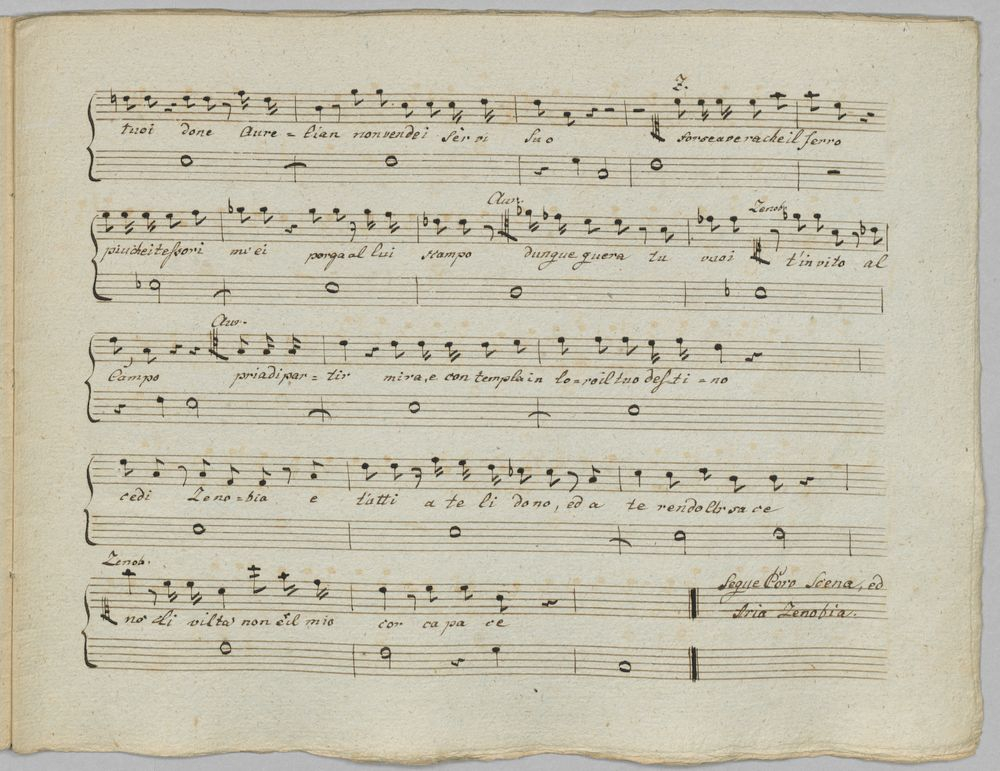 Z.
tuoi done Aure = lian non vendei Servi Suo forse avera che il ferro
Aur. Zenob.
piu che i tessori miei porga al lui Scampo dunque guera tu vuoi t'invito al
Aur.
Campo pria di par = tir mira, e contempla in lo = ro il tuo desti = no
cedi Zeno = bia e tutti a te li dono, ed a te rendo
Zenob.
no di vilta non è il mio cor capa ce
Segue Scena, ed
Aria Zenobia.